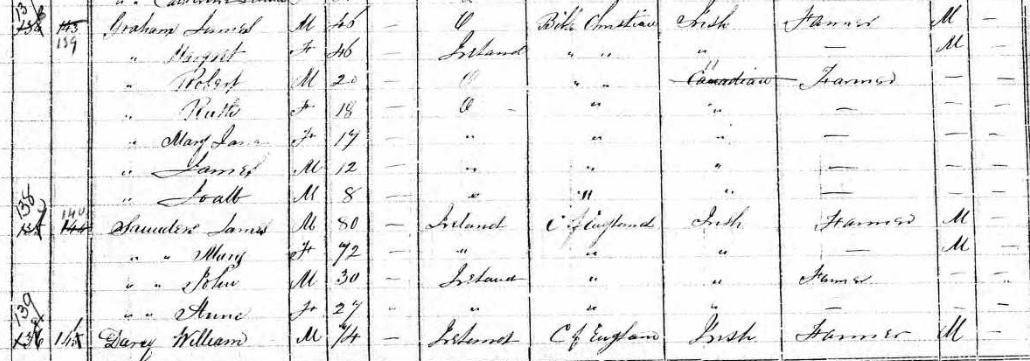 138 143 139 Graham James M 46 — O Bible Christian Irish Farmer M —
" Margret F 46 — Ireland " " " — M —
" Robert M 20 — O " " Canadian " Farmer — —
" Ruth F 18 — O — " " — — —
" Mary Jane F 17 — " " " — — —
" James M 12 — " " " — — —
" M 8 — " " " — — —
138 140 Saunders James M 80 — Ireland C of England Irish Farmer M —
" " Mary F 72 — " " " — M —
" " John M 30 — Ireland " " Farmer — —
" " Anne F 27 " " " " — — —
139 Darcy William M 74 — Ireland C of England Irish Farmer M —